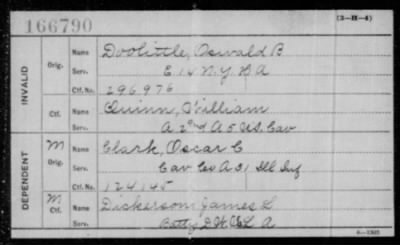 166790 (3-H-4)
INVALID
Orig.
Name Doolittle, Oswald B
Serv. E 14 N.Y. H A
Ctf. No. 296976
Ctf.
Name Quinn, William
Serv. A 2nd A 5 U.S. Cav
DEPENDENT
M
Orig.
Name Clark, Oscar C
Serv. Cav Co A 31 Ill Inf
Ctf. No. 124145
M
Ctf.
Name Dickerson, James L
Serv. Batty D L A